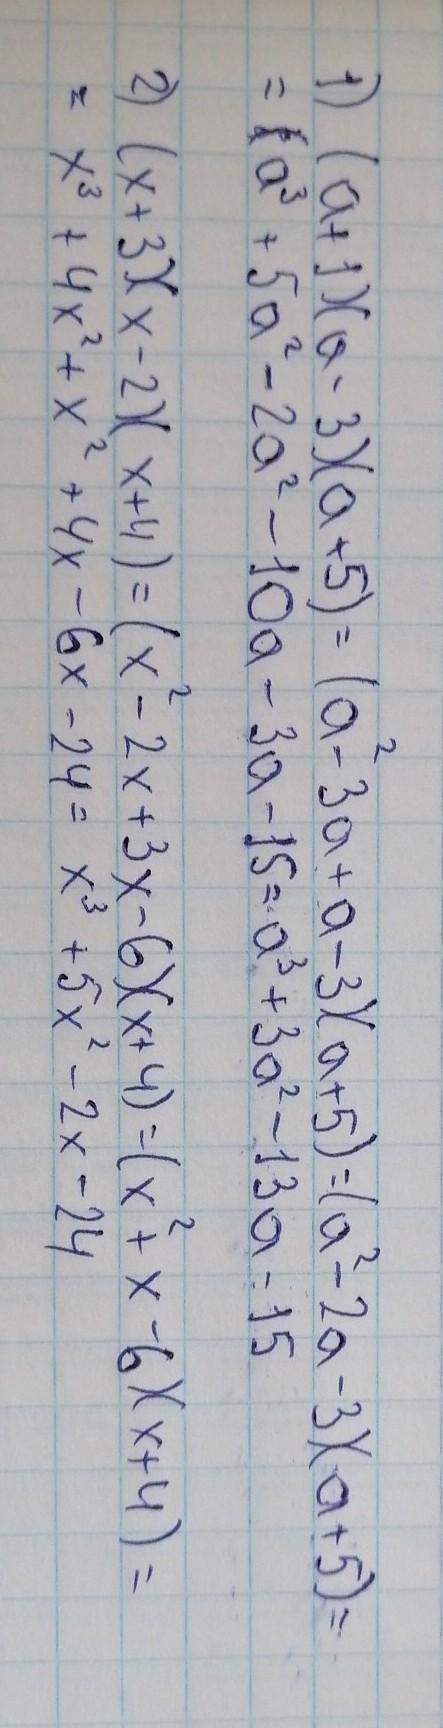 1) (a+1)(a-3)(a+5)=(a²-3a+a-3)(a+5)=(a²-2a-3)(a+5)=
=a³+5a²-2a²-10a-3a-15=a³+3a²-13a-15
2) (x+3)(x-2)(x+4)=(x²-2x+3x-6)(x+4)=(x²+x-6)(x+4)=
=x³+4x²+x²+4x-6x-24=x³+5x²-2x-24